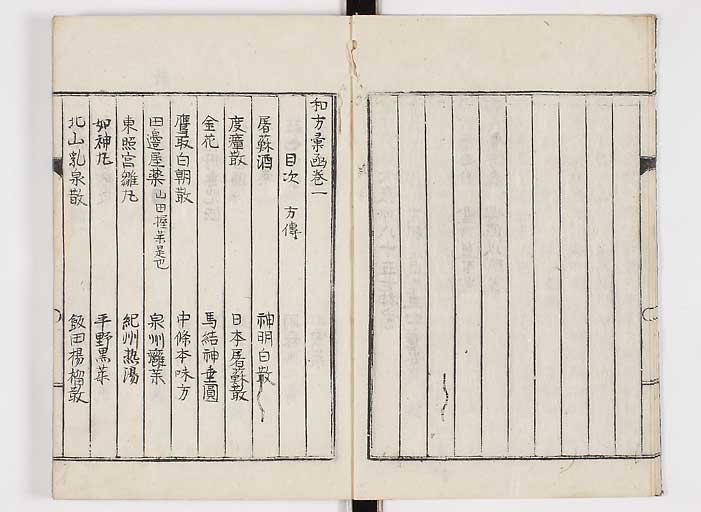 和方彙函巻一
目次 方傳
屠蘓酒 神明白散
度瘴散 日本屠蘓散
金花 馬結神垂圓
鷹取白朝散 中條本味方
田邊屋薬山田振薬是也 泉州
東照宮 紀州熱湯
如神丸 平野黒薬
北山乳泉散 飯田楊榴散